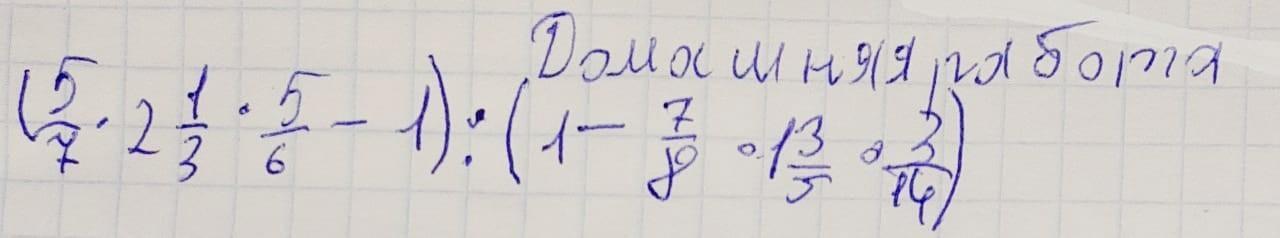 Домашняя работа
(5/7 · 2 1/3 · 5/6 - 1) : (1 - 7/8 · 1 3/5 · 3/14)